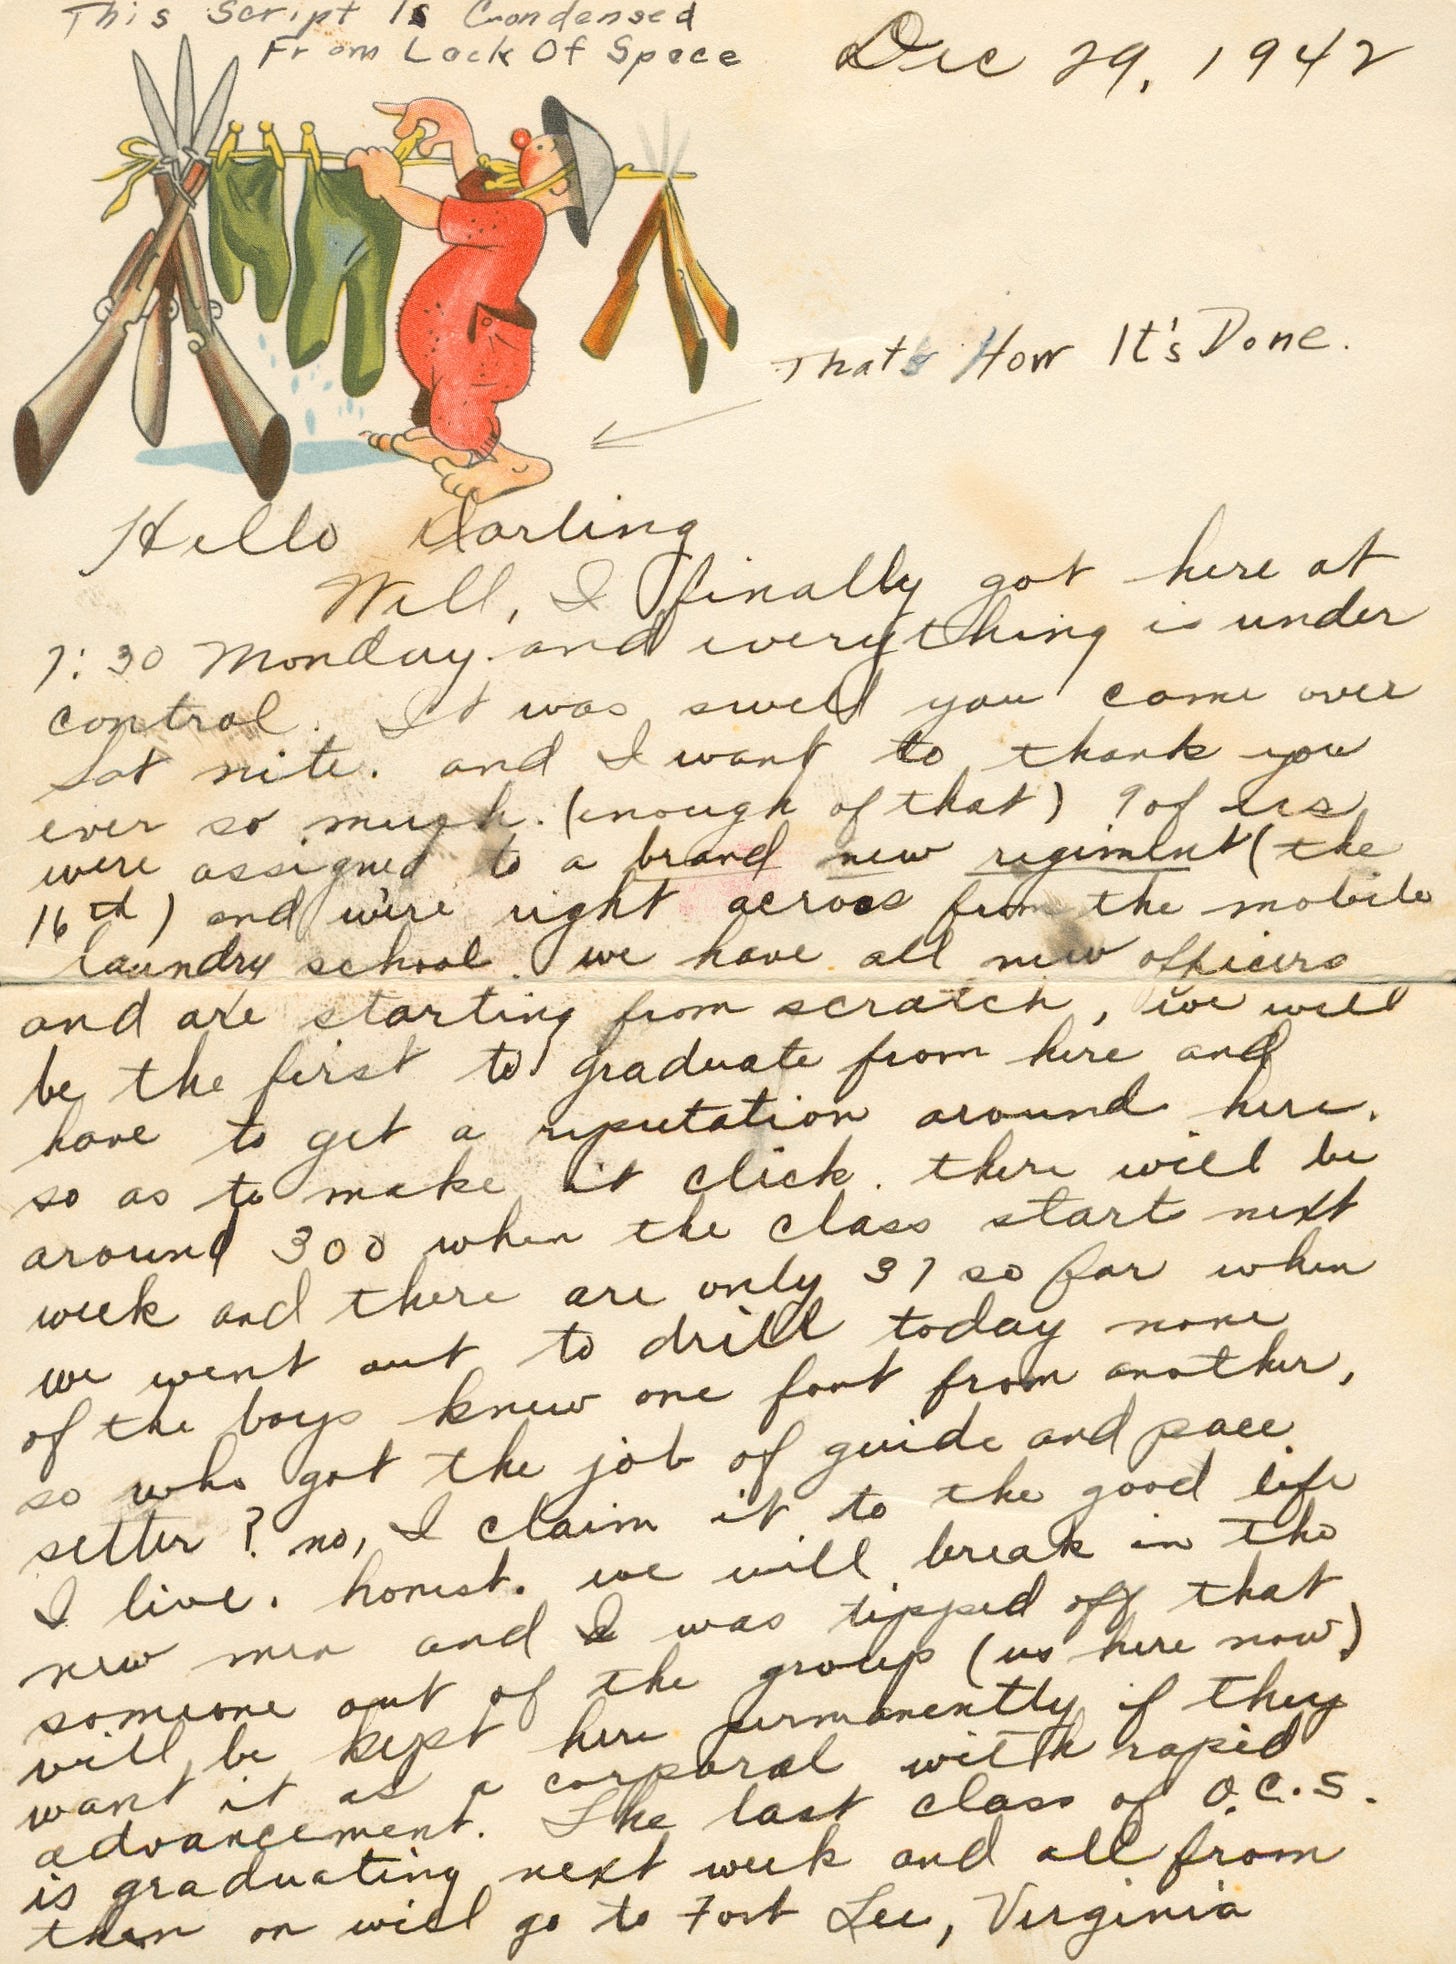 This Script Is Condensed
From Lack Of Space
Dec 29, 1942
That's How It's Done.
Hello Darling
Well, I finally got here at
7:30 Monday and everything is under
control. It was swell you came over
Sat nite. and I want to thank you
ever so much. (enough of that) 9 of us
were assigned to a brand new regiment (the
16th) and we're right across from the mobile
laundry school. we have all new officers
and are starting from scratch, we will
be the first to graduate from here and
have to get a reputation around here.
so as to make it click. there will be
around 300 when the class starts next
week and there are only 37 so far when
we went out to drill today none
of the boys knew one foot from another,
so who got the job of guide and pace
setter? no, I claim it to the good life
I live. honest. we will break in the
new men and I was tipped off that
someone out of the group (us here now)
will be kept here permanently if they
want it as a corporal with rapid
advancement. The last class of O.C.S.
is graduating next week and all from
then on will go to Fort Lee, Virginia